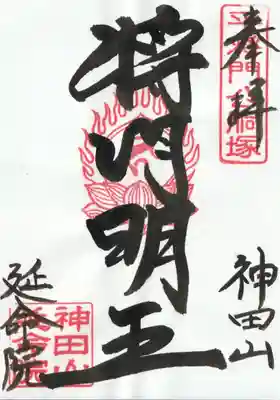 奉拝
平将門胴塚
将門明王
神田山
延命院
神田山
延命院